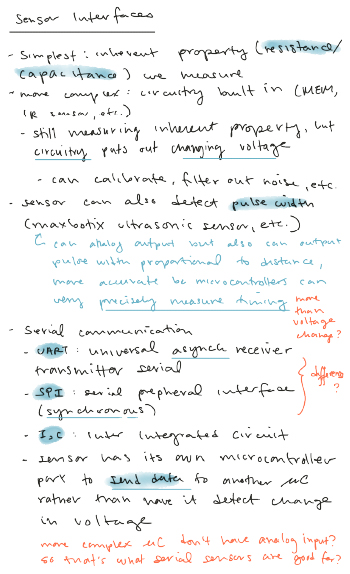 Sensor Interfaces
- Simplest : inherent property (resistance/
capacitance) we measure
- more complex : circuitry built in (MEM,
IR sensor, etc.)
- still measuring inherent property, but
circuitry puts out changing voltage
- can calibrate, filter out noise, etc.
- sensor can also detect pulse width
(maxbotix ultrasonic sensor, etc.)
can analog output but also can output
pulse width proportional to distance,
more accurate bc microcontrollers can
very precisely measure timing
more
than
voltage
change?
- Serial communication
- UART : universal asynch receiver
transmitter serial
- SPI : serial peripheral interface
(synchronous)
difference
?
- I2C : Inter Integrated Circuit
- sensor has its own microcontroller
part to send data to another µC
rather than have it detect change
in voltage
more complex µC don't have analog input?
so that's what serial sensors are good for?